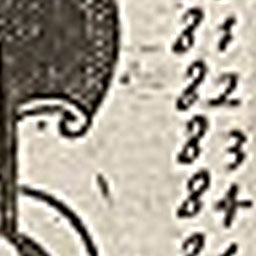 81
82
83
84